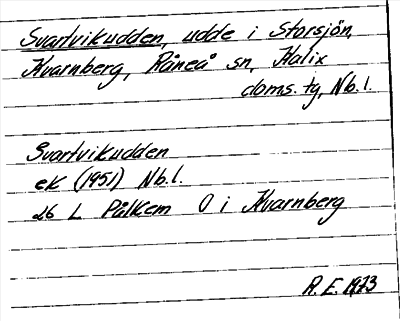 Svartvikudden, udde i Storsjön,
Kvarnberg, Råneå sn, Kalix
doms. tg, Nb.l.
Svartvikudden
ek (1951) Nb.l.
26 L Pålkem O i Kvarnberg
R.E. 1973